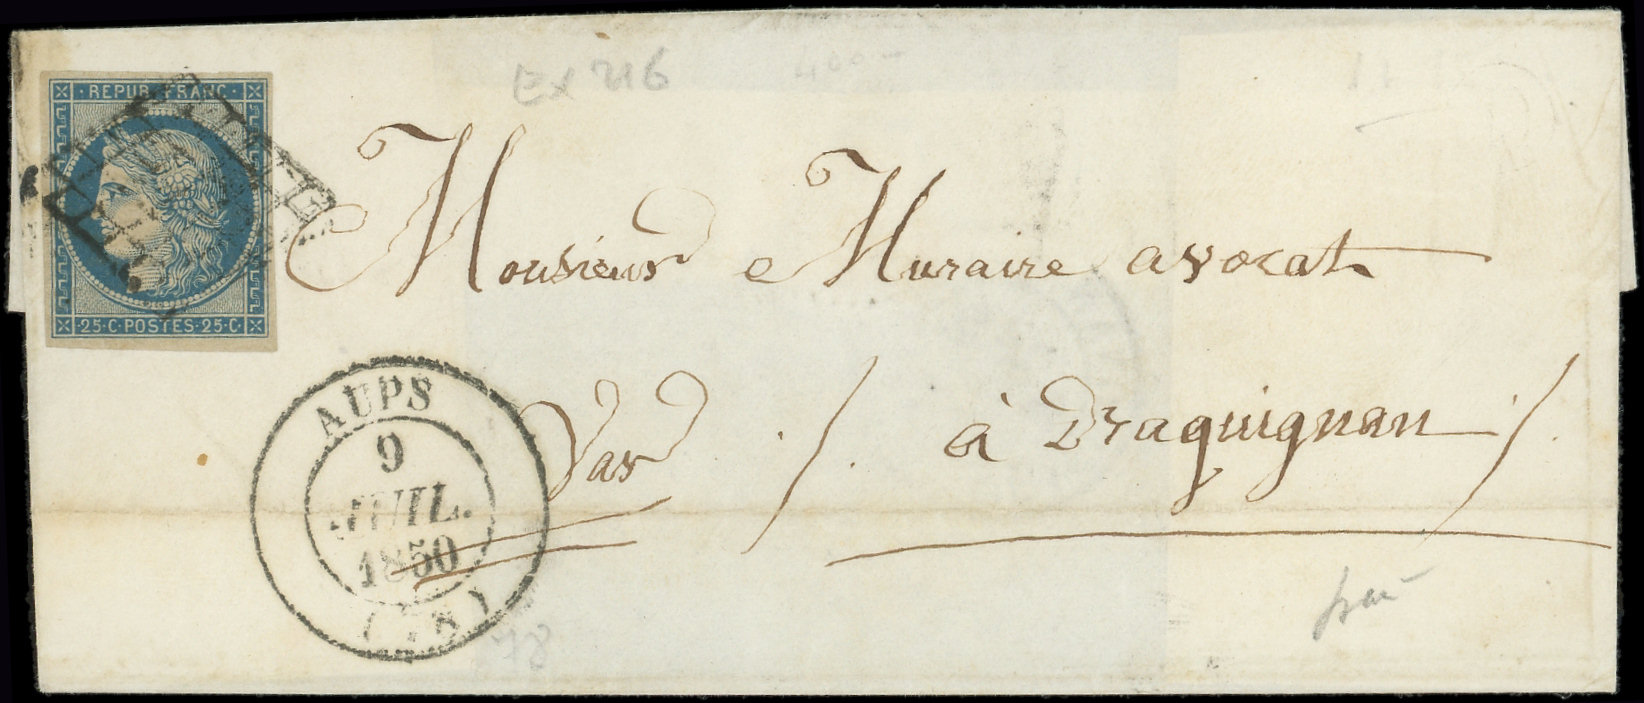 Ex 216
400-
REPUB. FRANC.
25·C·POSTES·25·C
Monsieur e Muraire avocat
Var /. à Draguignan ./.
AUPS
9
JUIL.
1850
(78)
78